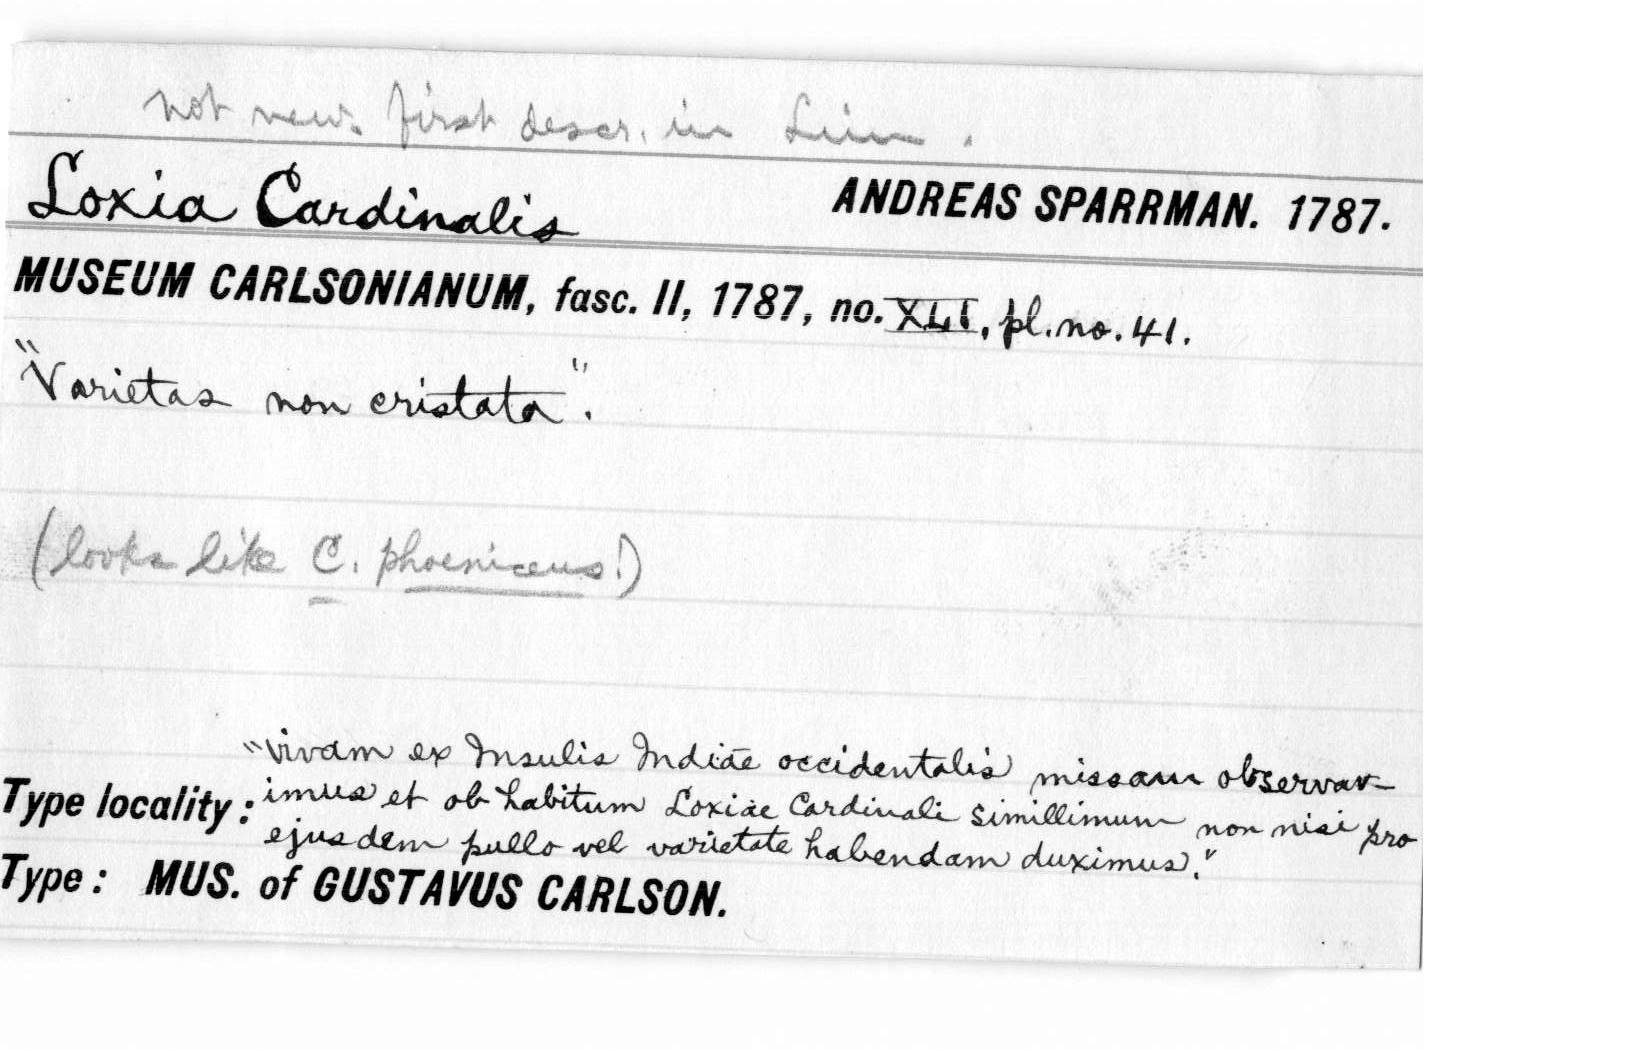 not new. first descr. in Linn.
Loxia Cardinalis ANDREAS SPARRMAN. 1787.
MUSEUM CARLSONIANUM, fasc. II, 1787, no. XLI, pl. no. 41.
"Varietas non cristata".
(looks like C. phoeniceus!)
"Vivam ex Insulis Indiæ occidentalis missam observav-
Type locality: imus et ob habitum Loxiæ Cardinali simillimum non nisi pro
ejusdem pullo vel varietate habendam duximus."
Type: MUS. of GUSTAVUS CARLSON.